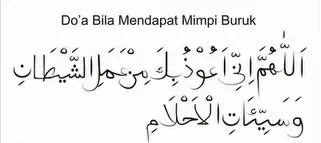 Do'a Bila Mendapat Mimpi Buruk
اَللّٰهُمَّ اِنِّيْ اَعُوْذُ بِكَ مِنْ عَمَلِ الشَّيْطَانِ
وَسَيِّئَاتِ الْاَحْلَامِ